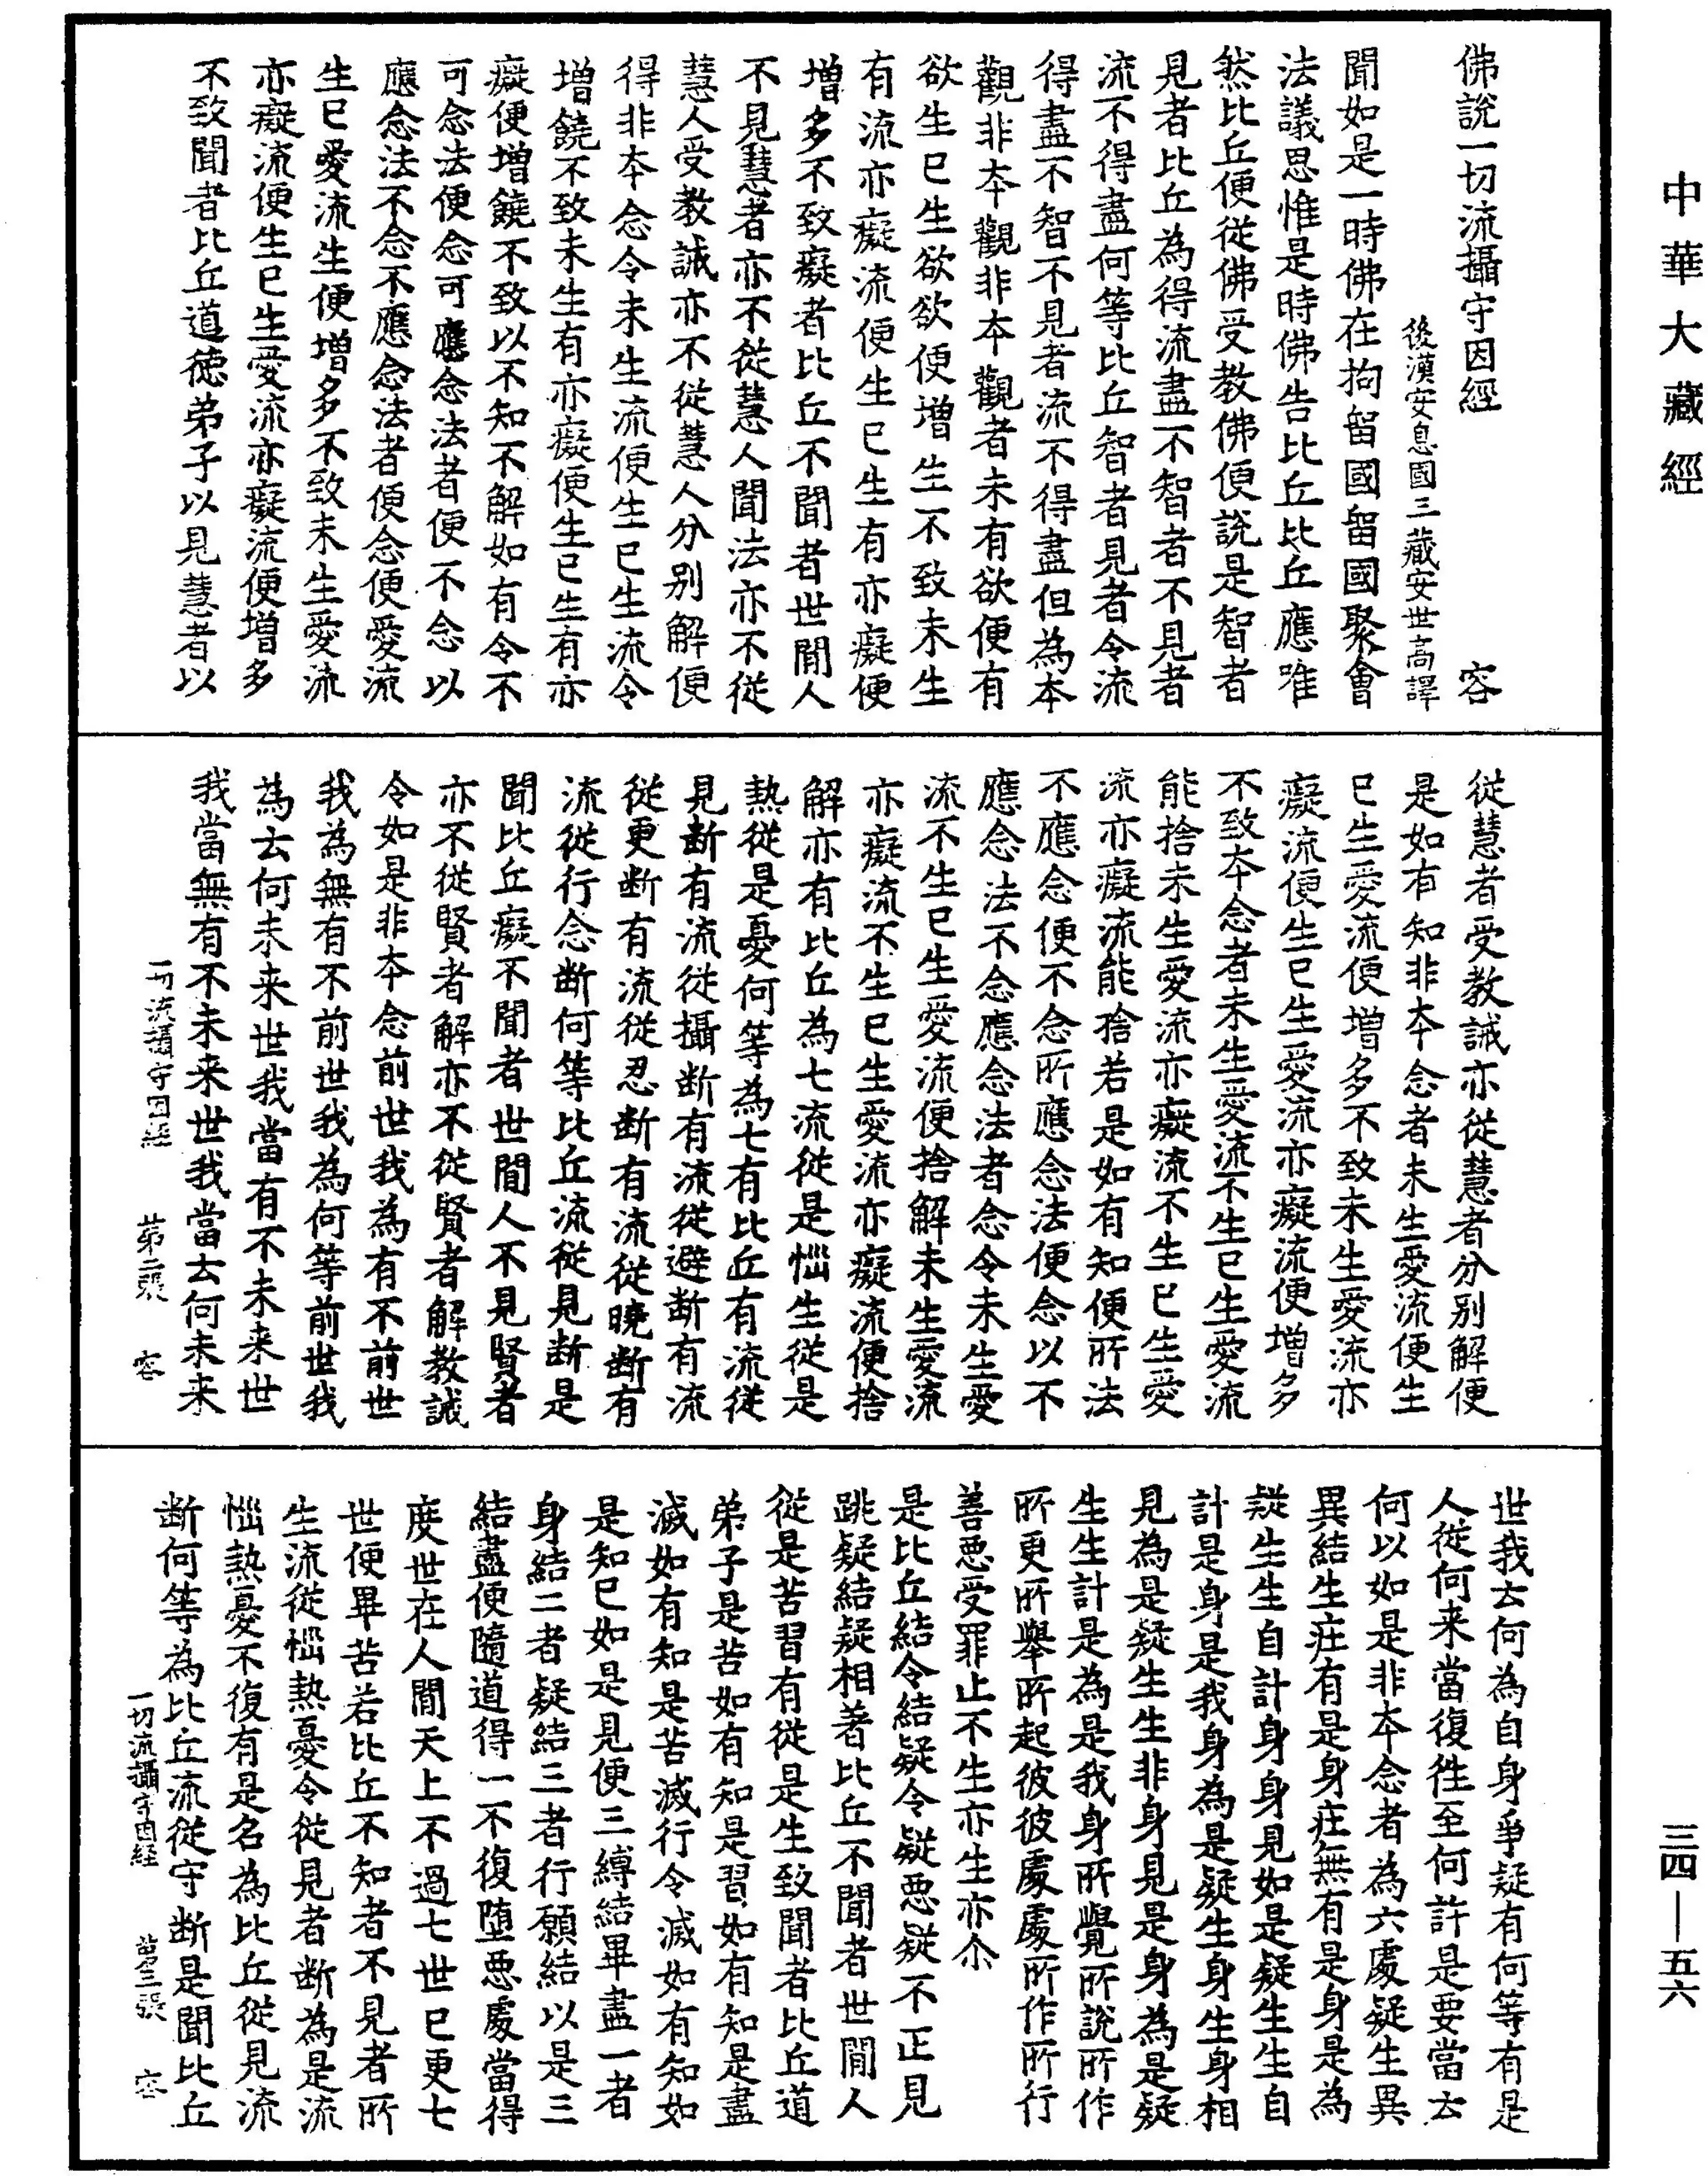 中華大藏經
佛說一切流攝守因經 容
後漢安息國三藏安世高譯
聞如是一時佛在拘留國留國聚會
法議思惟是時佛告比丘比丘應唯
然比丘便從佛受教佛便說是智者
見者比丘為得流盡不智者不見者
流不得盡何等比丘智者見者令流
得盡不智不見者流不得盡但為本
觀非夲觀非夲觀者未有欲便有
欲生已生欲欲便增生不致未生
有流亦癡流便生已生有亦癡便
增多不致癡者比丘不聞者世間人
不見慧者亦不從慧人聞法亦不從
慧人受教誡亦不從慧人分別解便
得非夲念令未生流便生已生流令
增饒不致未生有亦癡便生已生有亦
癡便增饒不致以不知不解如有令不
可念法便念可應念法者便不念以
應念法不念不應念法者便念便愛流
生已愛流生便增多不致未生愛流
亦癡流便生已生愛流亦癡流便增多
不致聞者比丘道德弟子以見慧者以
從慧者受教誡亦從慧者分別解便
是如有知非夲念者未生愛流便生
已生愛流便增多不致未生愛流亦
癡流便生已生愛流亦癡流便增多
不致夲念者未生愛流不生已生愛流
能捨未生愛流亦癡流不生已生愛
流亦癡流能捨若是如有知便所法
不應念便不念所應念法便念以不
應念法不念應念法者念令未生愛
流不生已生愛流便捨解未生愛流
亦癡流不生已生愛流亦癡流便捨
解亦有比丘為七流從是惱生從是
熱從是憂何等為七有比丘有流從
見断有流從攝断有流從避断有流
從更断有流從忍断有流從曉断有
流從行念断何等比丘流從見断是
聞比丘癡不聞者世間人不見賢者
亦不從賢者解亦不從賢者解教誡
令如是非夲念前世我為有不前世
我為無有不前世我為何等前世我
為云何未来世我當有不未来世
我當無有不未来世我當云何未来
一切流攝守因經 第二張 容
世我云何為自身爭疑有何等有是
人從何来當復徃至何許是要當云
何以如是非夲念者為六處疑生異
異結生在有是身在無有是身是為
疑生生自計身身見如是疑生生自
計是身是我身為是疑生身生身相
見為是疑生生非身見是身為是疑
生生計是為是我身所覺所說所作
所更所舉所起彼彼處處所作所行
善惡受罪止不生亦生亦尒
是比丘結令結疑令疑惡疑不正見
跳疑結疑相著比丘不聞者世間人
從是苦習有從是生致聞者比丘道
弟子是苦如有知是習如有知是盡
滅如有知是苦滅行令滅如有知如
是知已如是見便三縛結畢盡一者
身結二者疑結三者行願結以是三
結盡便隨道得一不復堕惡處當得
度世在人間天上不過七世已更七
世便畢苦若比丘不知者不見者所
生流從惱熱憂令從見者断為是流
惱熱憂不復有是名為比丘從見流
断何等為比丘流從守断是聞比丘
一切流攝守因經 第三張 容
三四—五六